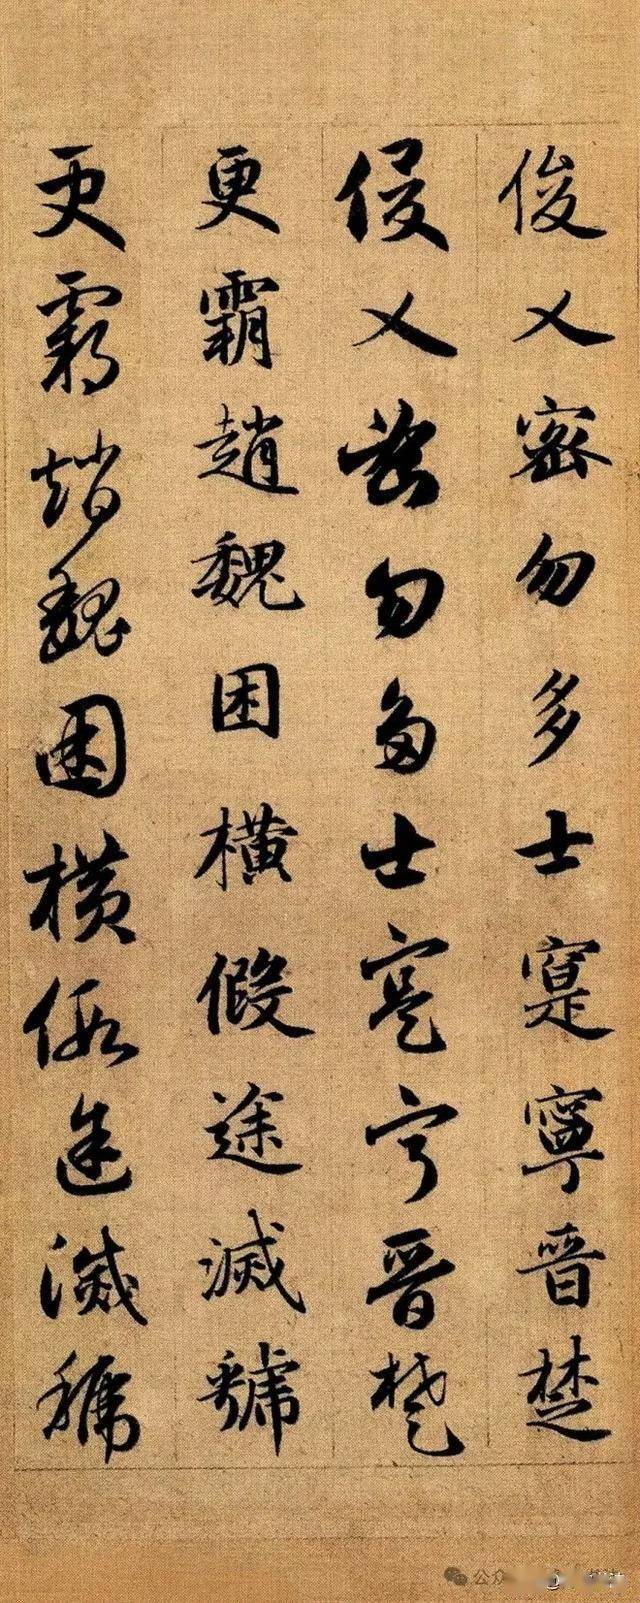 俊乂密勿多士寔寧晉楚
俊乂密勿多士寔寧晉楚
更霸趙魏困橫假途滅虢
更霸趙魏困橫假途滅虢
公众